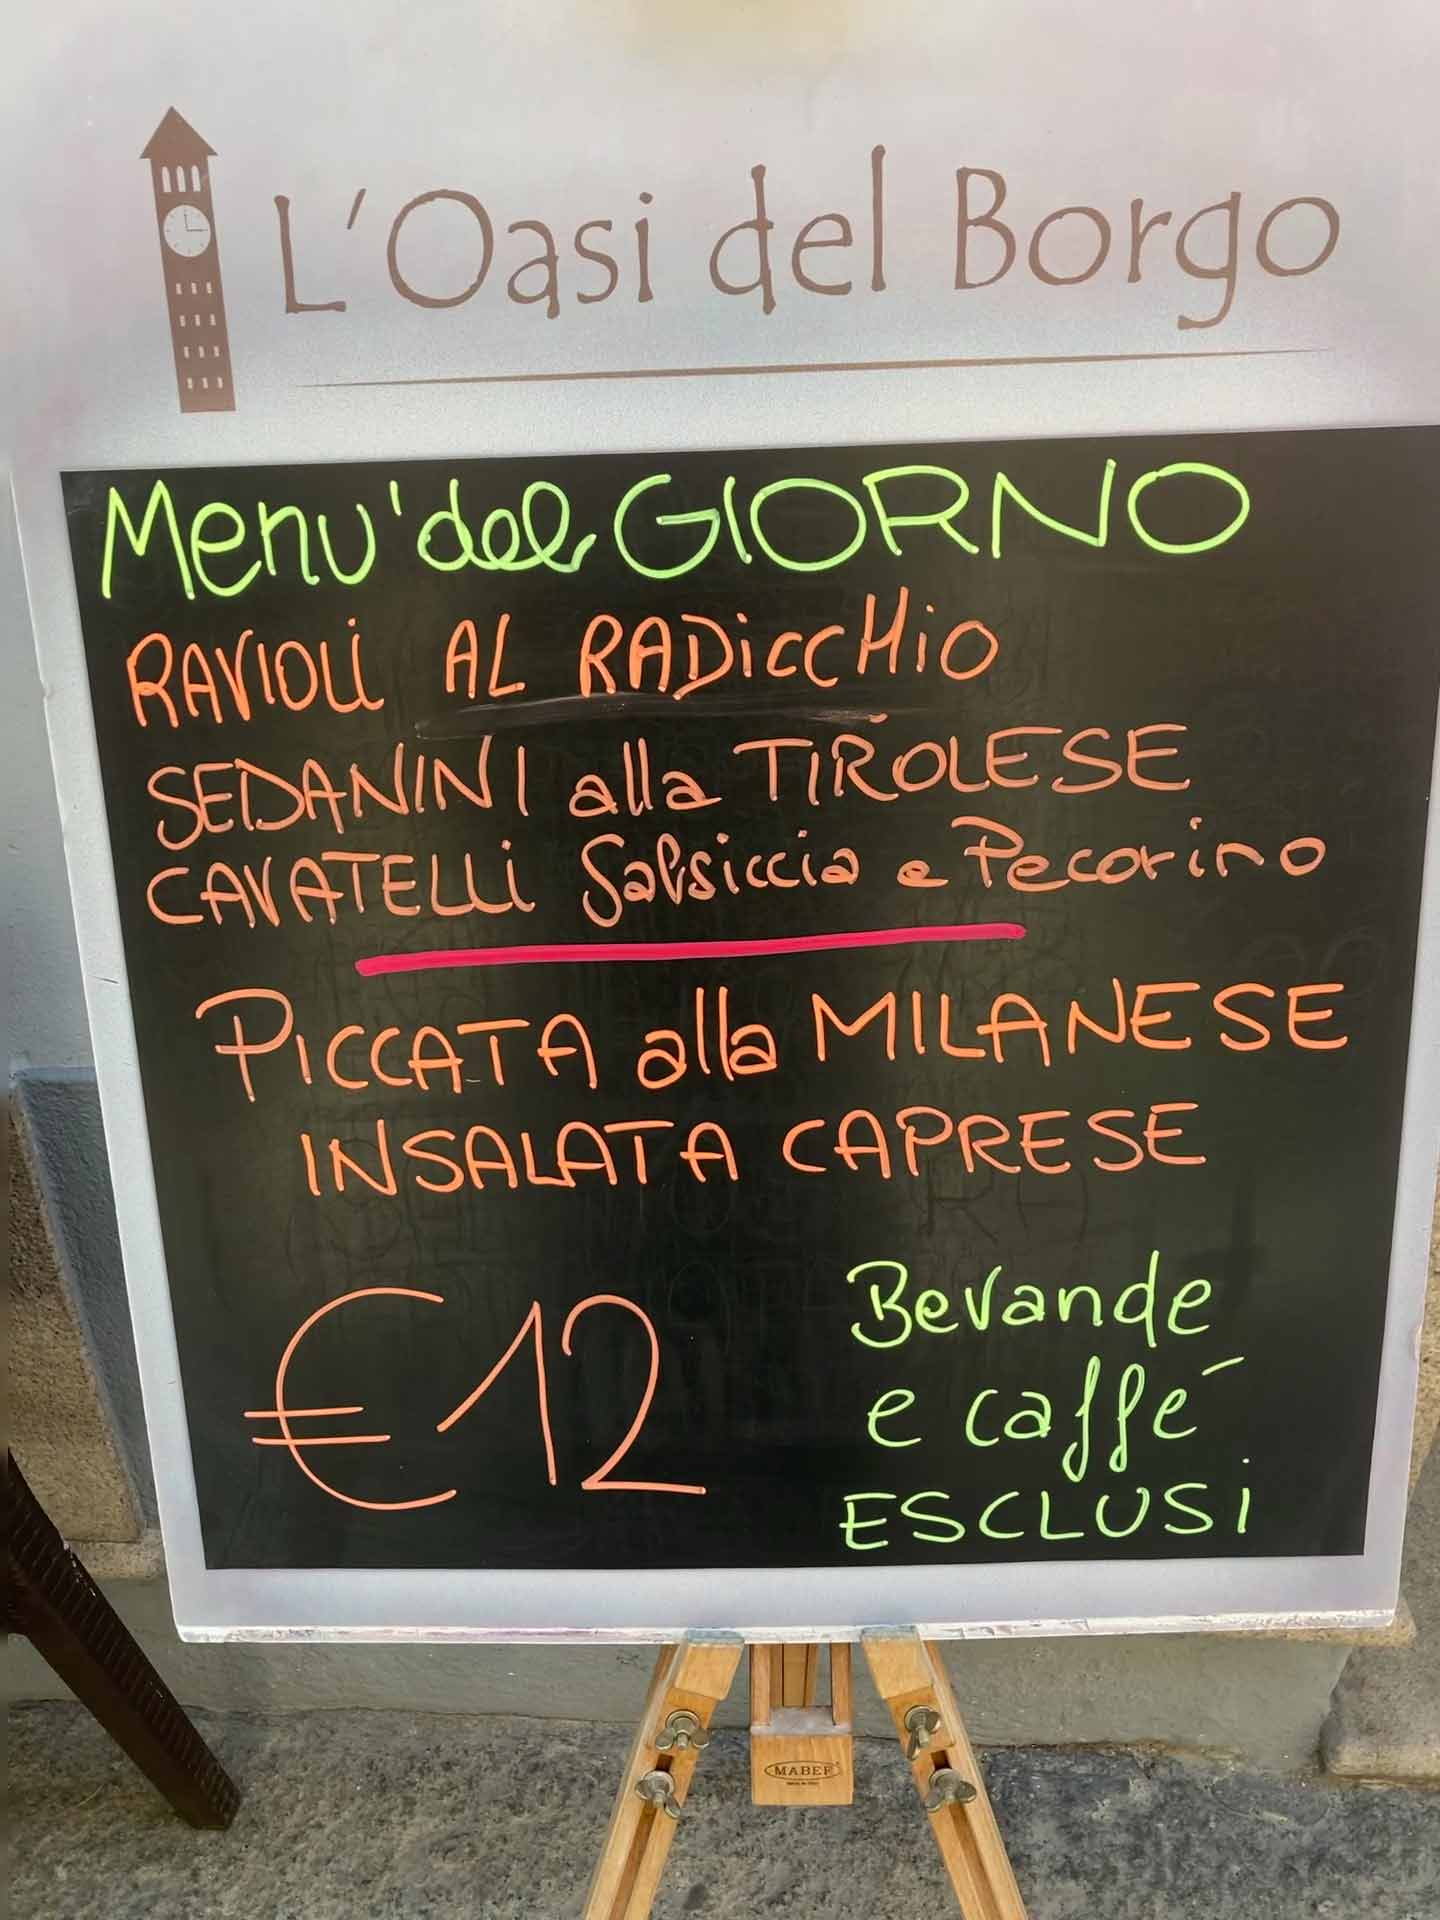 L'Oasi del Borgo
Menu' del GIORNO
RAVIOLi AL RADiccHiO
SEDANINI alla TIROLESE
CAVATELLi Salsiccia e Pecorino
PICCATA alla MILANESE
INSALATA CAPRESE
€12
Bevande
e caffé
ESCLUSi
MABEF